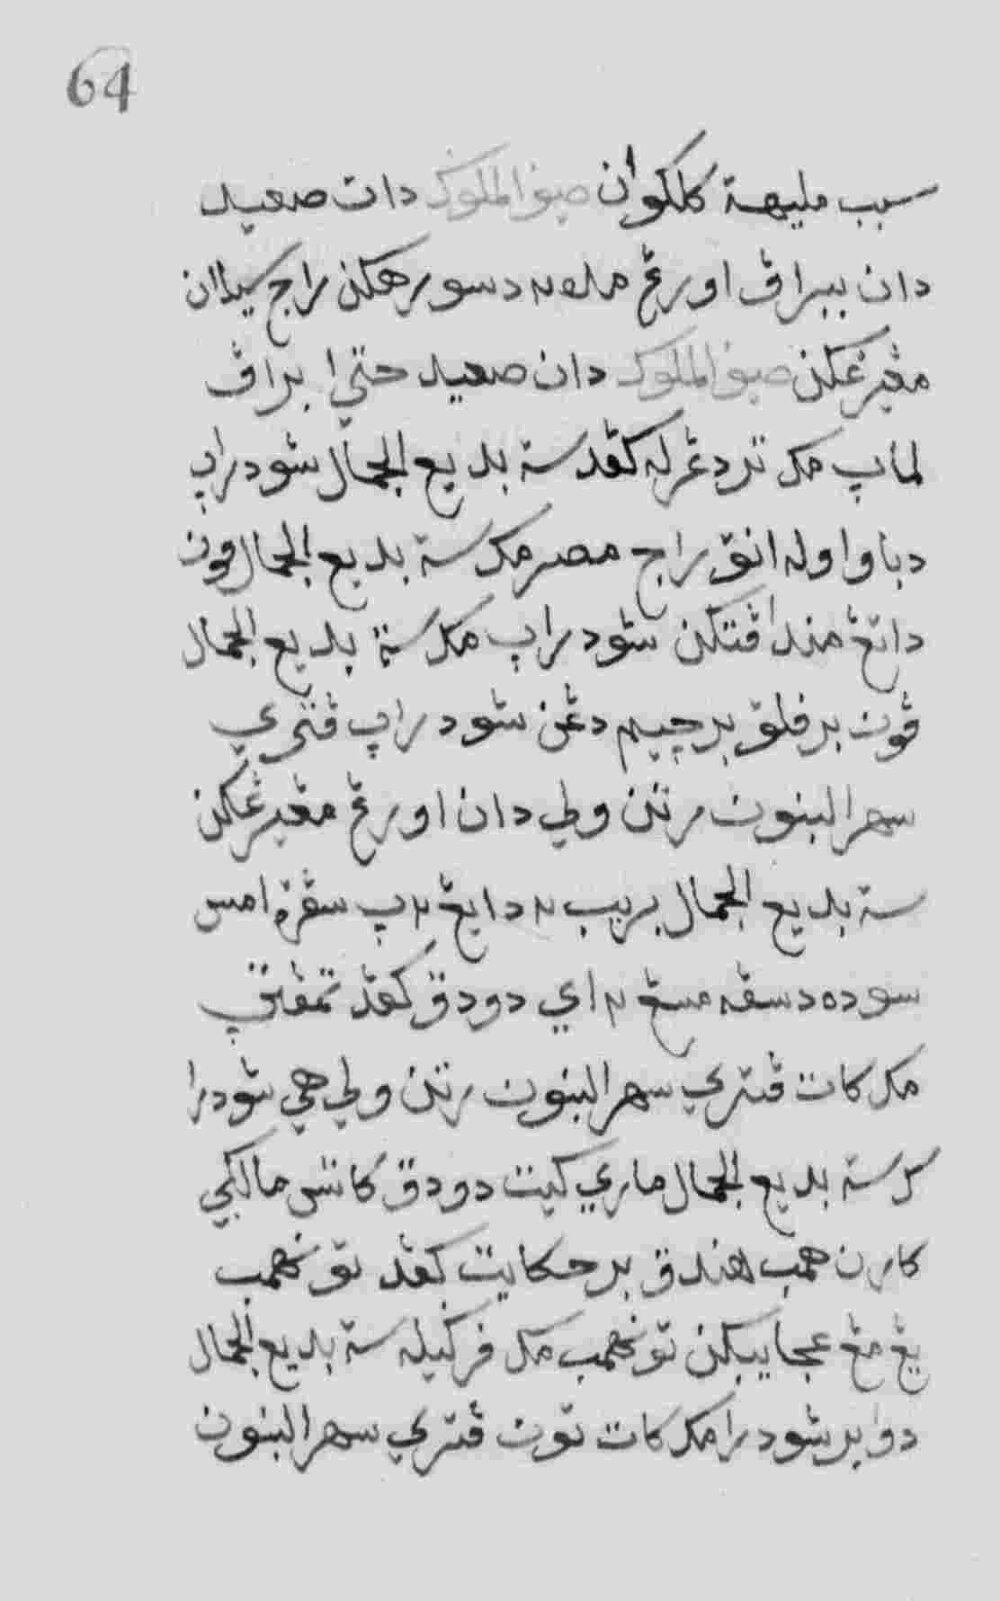 64
سبب مليهة كلكوان صيف الملوك دان صعيد
دان ببراڤ اورڠ ملڠ دسورهكن راج سيلان
مڠيرڠكن صيف الملوك دان صعيد حتي ا براڤ
لماپ مك تردڠرله كڤد ستة بديع الجمال سودراپ
دباوا اوله انق راج مصر مك ستة بديع الجمال ڤون
داتڠ منداڤتكن سودراپ مك ستة بديع الجمال
ڤون برفلق برچيم دڠن سودراپ ڤتري
سهر البنون رتن ولي دان اورڠ مڠيرڠكن
ستة بديع الجمال بريب ٢ دايڠ ٢ پ سڤرة امس
سوده دسڤه مسڠ ٢ اي دودق كڤد تمڤتپ
مك كات ڤتري سهر البنون رتن ولي هي سودرا
كو ستة بديع الجمال ماري كيت دودق كاتس ماليكي
كارن همب هندق برحكايت كڤد توانهمب
يڠ مڠعجايبكن توانهمب مك فركيله ستة بديع الجمال
دوا برسودرا مك كات توان ڤتري سهر البنون